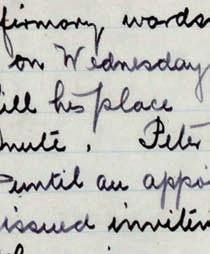 firmary wards
on Wednesday
ill his place
inute. Peter
until an appoi
issued inviting